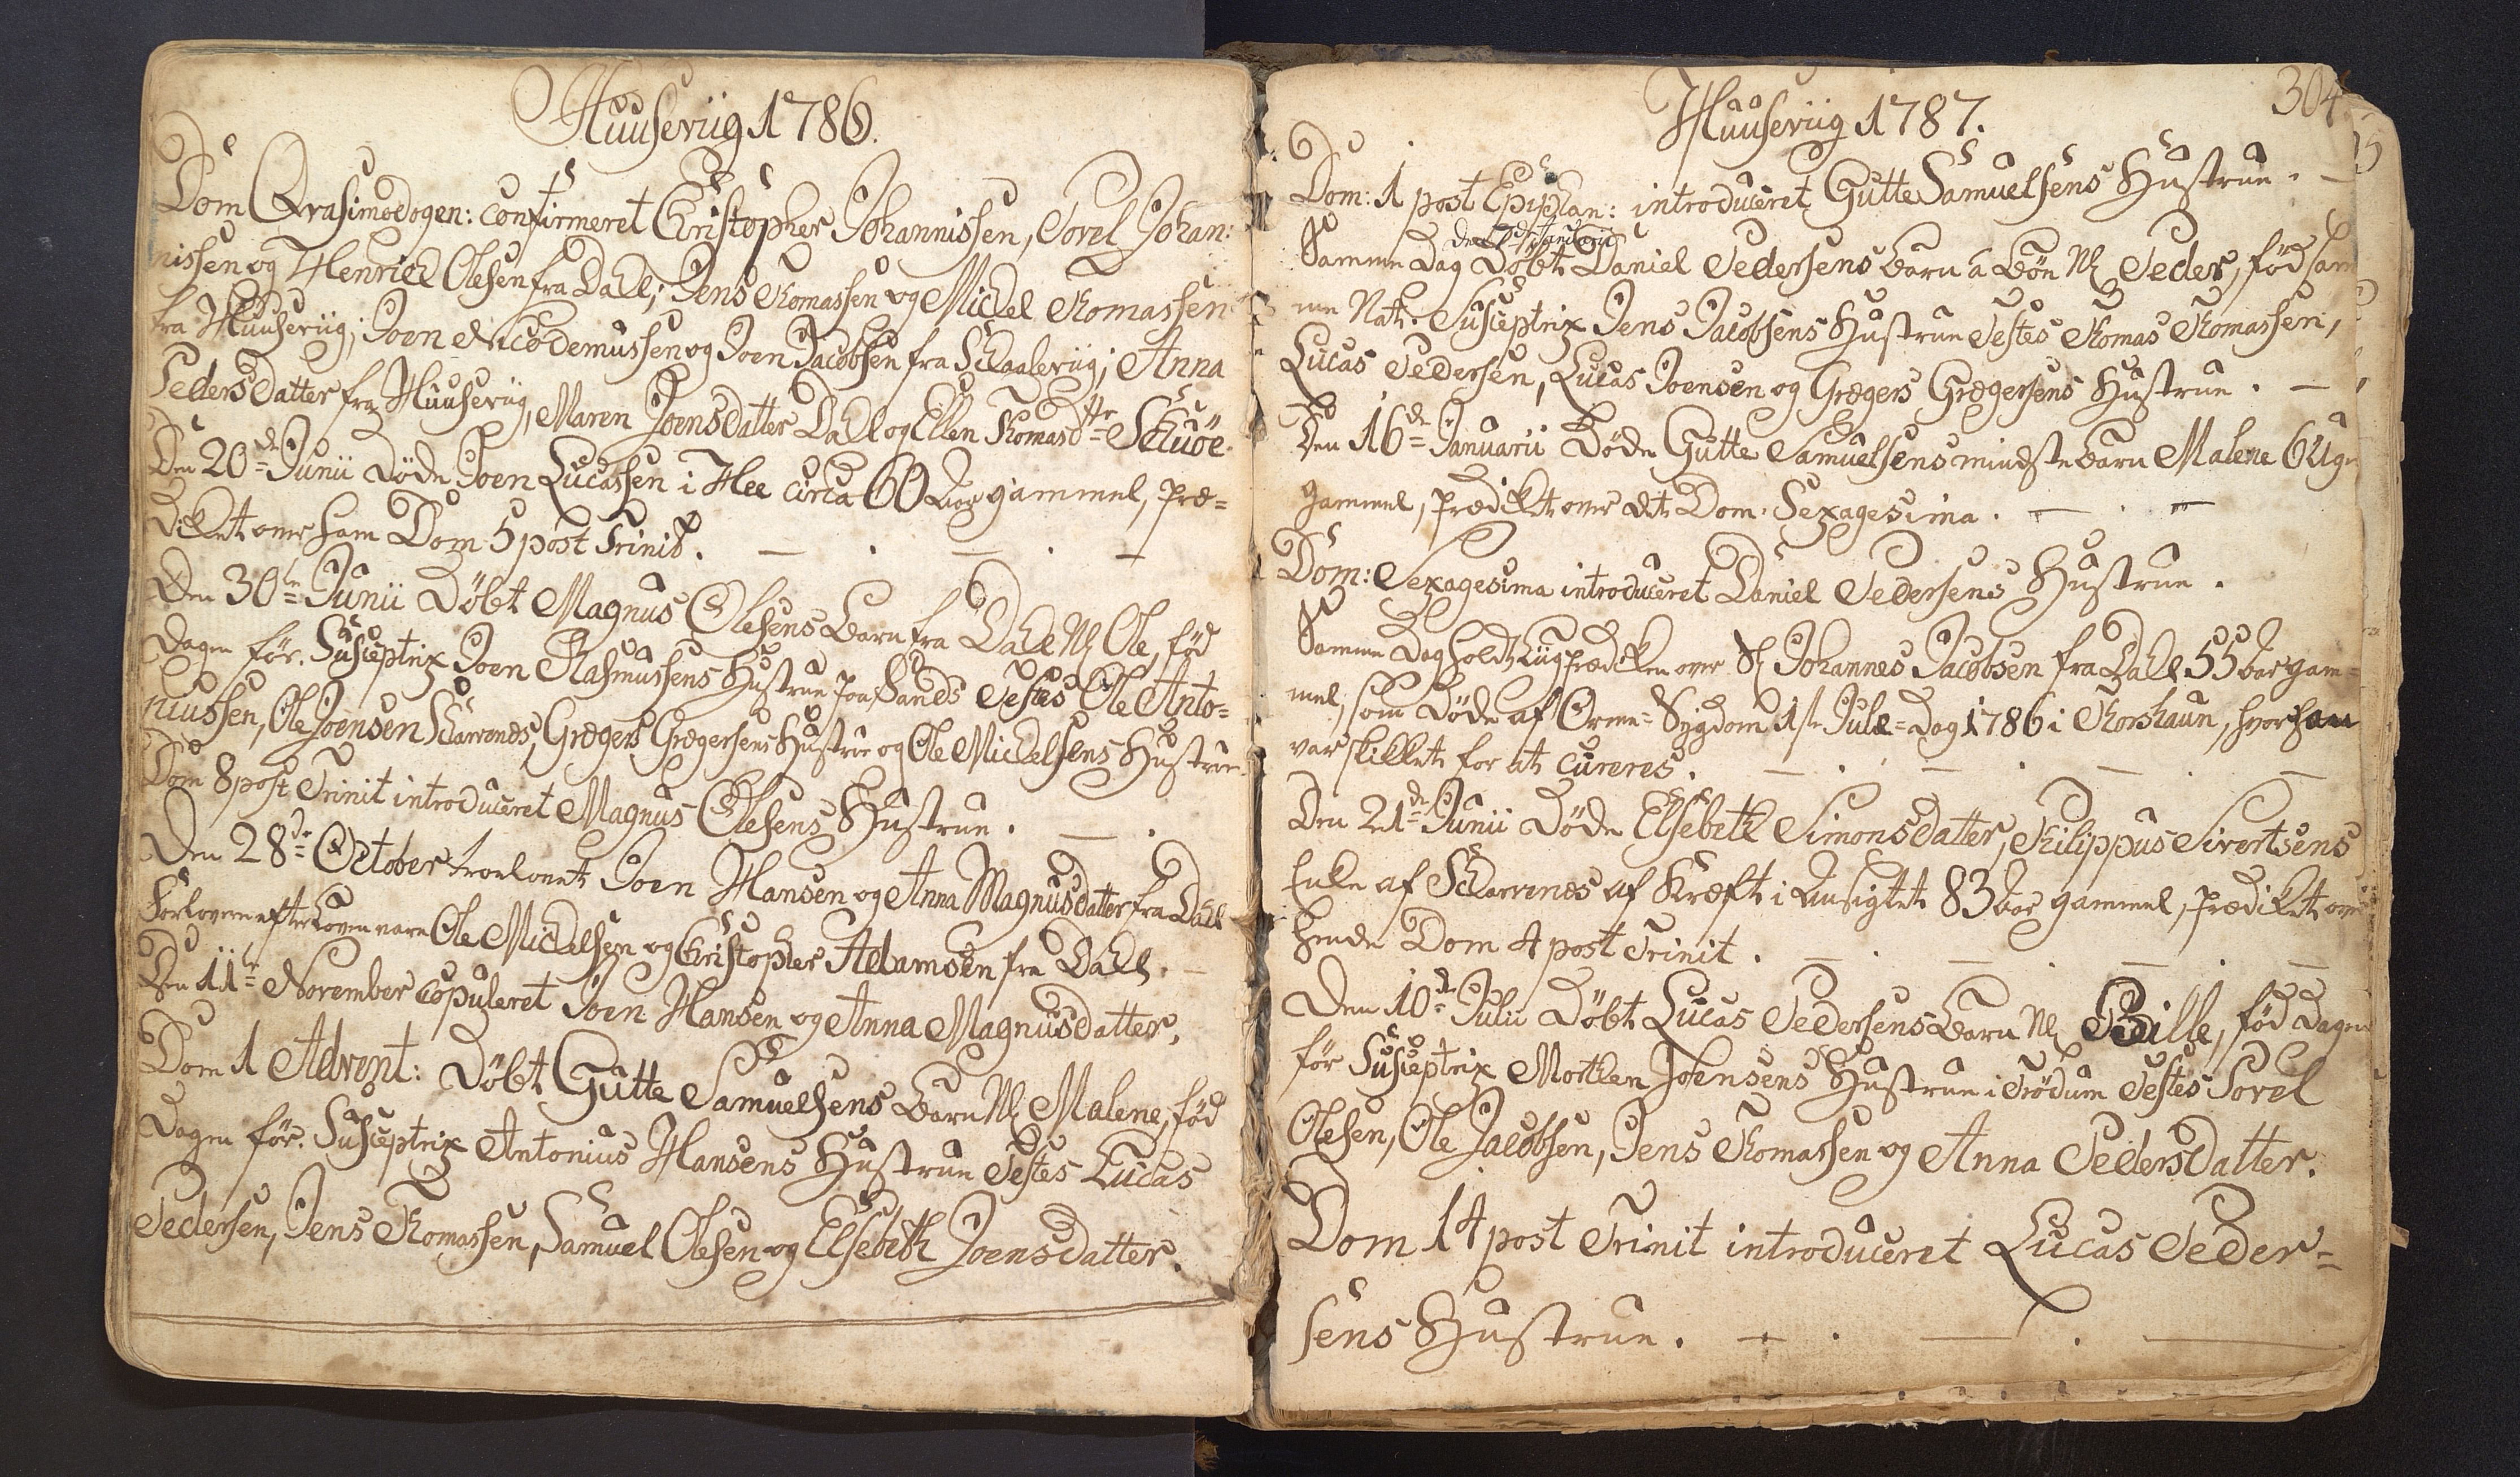 Huuseviig 1786.
Dom Qvasimodogen: confirmeret Christopher Johannissen, Povel Johan:
nissen og Henrich Olesen fra Dahl; Jens Thomassen og Michel Thomassen
fra Huuseviig; Joen Nicodemussen og Joen Jacobsen fra Schaaleviig; Anna
Peders Datter fra Huuseviig, Maren Joensdatter Dahl og Ellen Thomasdtr Schuøe.
Den 20de Junii Døde Joen Lucassen i Hee circa 60 Aar gammel, præ=
diket over ham Dom 5 post Trinit. — . — . —
Den 30te Junii Døbt Magnus Olesens Barn fra Dahl N. Ole, fød
Dagen før. Susceptrix Joen Rasmussens Hustrue paa Sands Testes Ole Anto=
niussen, Ole Joensen Scharvenes, Grægers Grægersens Hustrue og Ole Michelsens Hustrue
Dom 8 post Trinit introduceret Magnus Olesens Hustrue. — .
Den 28de October trolovet Joen Hansen og Anna Magnusdatter fra Dahl
Forlovere efter Loven vare Ole Michelsen og Christopher Adamsen fra Dahl. —
Den 11te November copuleret Joen Hansen og Anna Magnusdatter.
Dom 1 Advent: Døbt Gutte Samuelsens Barn N. Malene, fød
Dagen før. Susceptrix Antonius Hansens Hustrue Testes Lucas
Pedersen, Jens Thomassen, Samuel Olesen og Elsebeth Joensdatter.
304
Huuseviig 1787.
Dom: 1 post Epiphan: introduceret Gutte Samuelsens Hustrue. —
Januarii
Samme Dag Døbt Daniel Pedersens Barn a Bøn N. Peder, fød sam
me Nat. Susceptrix Jens Jacobsens Hustrue Testes Thomas Thomassen,
Lucas Pedersen, Lucas Joensen og Grægers Grægersens Hustrue. —
Den 16de Januarii Døde Gutte Samuelsens mindste Barn Malene 6 Uger
gammel, prædiket over det Dom. Sexagesima. — . —
Dom: Sexagesima introduceret Daniel Pedersens Hustrue.
Samme Dag holdt Liigprædiken over S. Johannes Jacobsen fra Dahl 55 Aar gam=
mel, som Døde af Orme=Sygdom 1ste Jule=Dag 1786 i Thorshaun, hvor han
var skikket for at cureres. — . — . — . —
Den 21de Junii Døde Elsebeth Simonsdatter, Philippus Sivertsens
Enke af Scharvenes af Kræft i Ansigtet 83 Aar gammel, prædiket over
hende Dom 4 post Trinit. — . — . — . —
Den 10de Julii Døbt Lucas Pedersens Barn N. Bille, fød Dagen
før Susceptrix Morthen Joensens Hustrue i Trødum Testes Povel
Olesen, Ole Jacobsen, Jens Thomassen og Anna Pedersdatter.
Dom 14 post Trinit introduceret Lucas Peder=
sens Hustrue. — . — . —